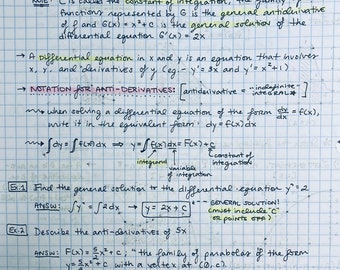 NOTE: C is called the constant of integration, the family of
functions represented by G is the general antiderivative
of f and G(x) = x² + C is the general solution of the
differential equation G'(x) = 2x
→ A differential equation in x and y is an equation that involves
x, y, and derivatives of y (eg:- y' = 3x and y' = x² + 1)
→ NOTATION FOR ANTI-DERIVATIVES: [antiderivative = "indefinite integral"]
when solving a differential equation of the form dy/dx = f(x),
write it in the equivalent form: dy = f(x) dx
∫dy = ∫f(x) dx ⇒ y = ∫f(x) dx = F(x) + C
integrand
variable of integration
constant of integration
Ex:1 Find the general solution to the differential equation y' = 2
ANSW: ∫y' = ∫2dx → y = 2x + C
GENERAL SOLUTION!
(must include "C" or points off)
Ex:2 Describe the anti-derivatives of 5x
ANSW: F(x) = 5/2 x² + C; "the family of parabolas of the form
y = 5/2 x² + C with a vertex at (0, C).